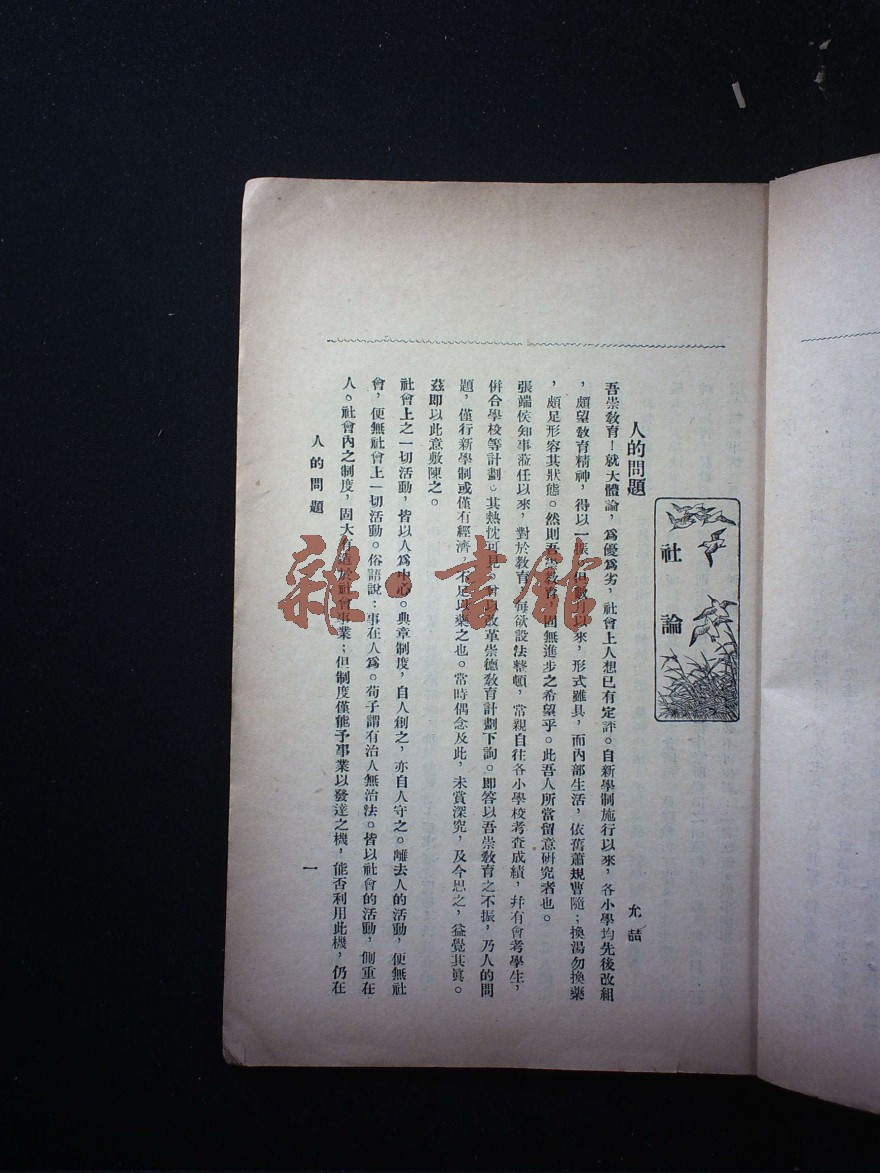 社論
人的問題
允喆
吾崇教育！就大體論，爲優爲劣，社會上人想已有定評。自新學制施行以來，各小學均先後改組
，頗望教育精神，得以一振。但數月以來，形式雖具，而內部生活，依舊蕭規曹隨；換湯勿換藥
，頗足形容其狀態。然則吾崇教育，固無進步之希望乎。此吾人所當留意研究者也。
張端侯知事蒞任以來，對於教育，每欲設法整頓，常親自往各小學校考查成績，幷有會考學生，
併合學校等計劃。其熱忱可見。曾以改革崇德教育計劃下詢。即答以吾崇教育之不振，乃人的問
題，僅行新學制或僅有經濟，不足以藥之也。當時偶念及此，未嘗深究，及今思之，益覺其眞。
茲即以此意敷陳之。
社會上之一切活動，皆以人爲中心。典章制度，自人創之，亦自人守之。離去人的活動，便無社
會，便無社會上一切活動。俗語說：事在人爲。荀子謂有治人無治法。皆以社會的活動，側重在
人。社會內之制度，固大有造於社會事業；但制度僅能予事業以發達之機，能否利用此機，仍在
人的問題
一
雜·書館